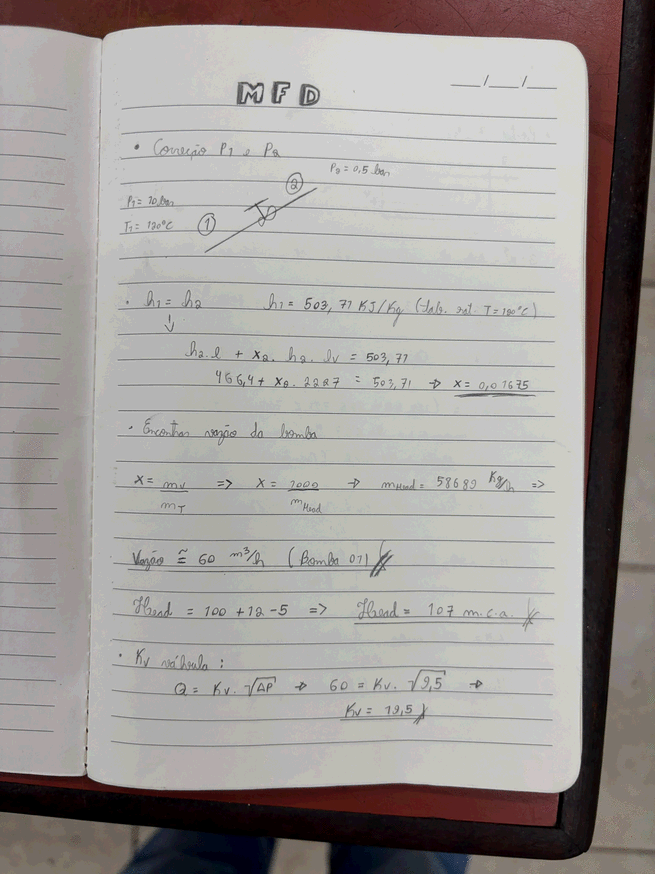 MFD
__/__/__
• Correção P1 e P2
P2 = 0,5 bar
②
P1 = 10 bar
T1 = 120°C ①
• h1 = h2 h1 = 503,71 KJ/Kg (tab. sat. T = 120°C)
↓
h2.l + x2. h2.lv = 503,71
466,4 + x2. 2227 = 503,71 → x = 0,01675
• Encontrar vazão da bomba
x = mv/mT => x = 1000/mHead → mHead = 58689 Kg/h =>
Vazão ≅ 60 m³/h (Bomba 01)
Head = 100 + 12 - 5 => Head = 107 m.c.a.
• Kv válvula :
Q = Kv. √ΔP → 60 = Kv. √9,5 →
Kv = 19,5